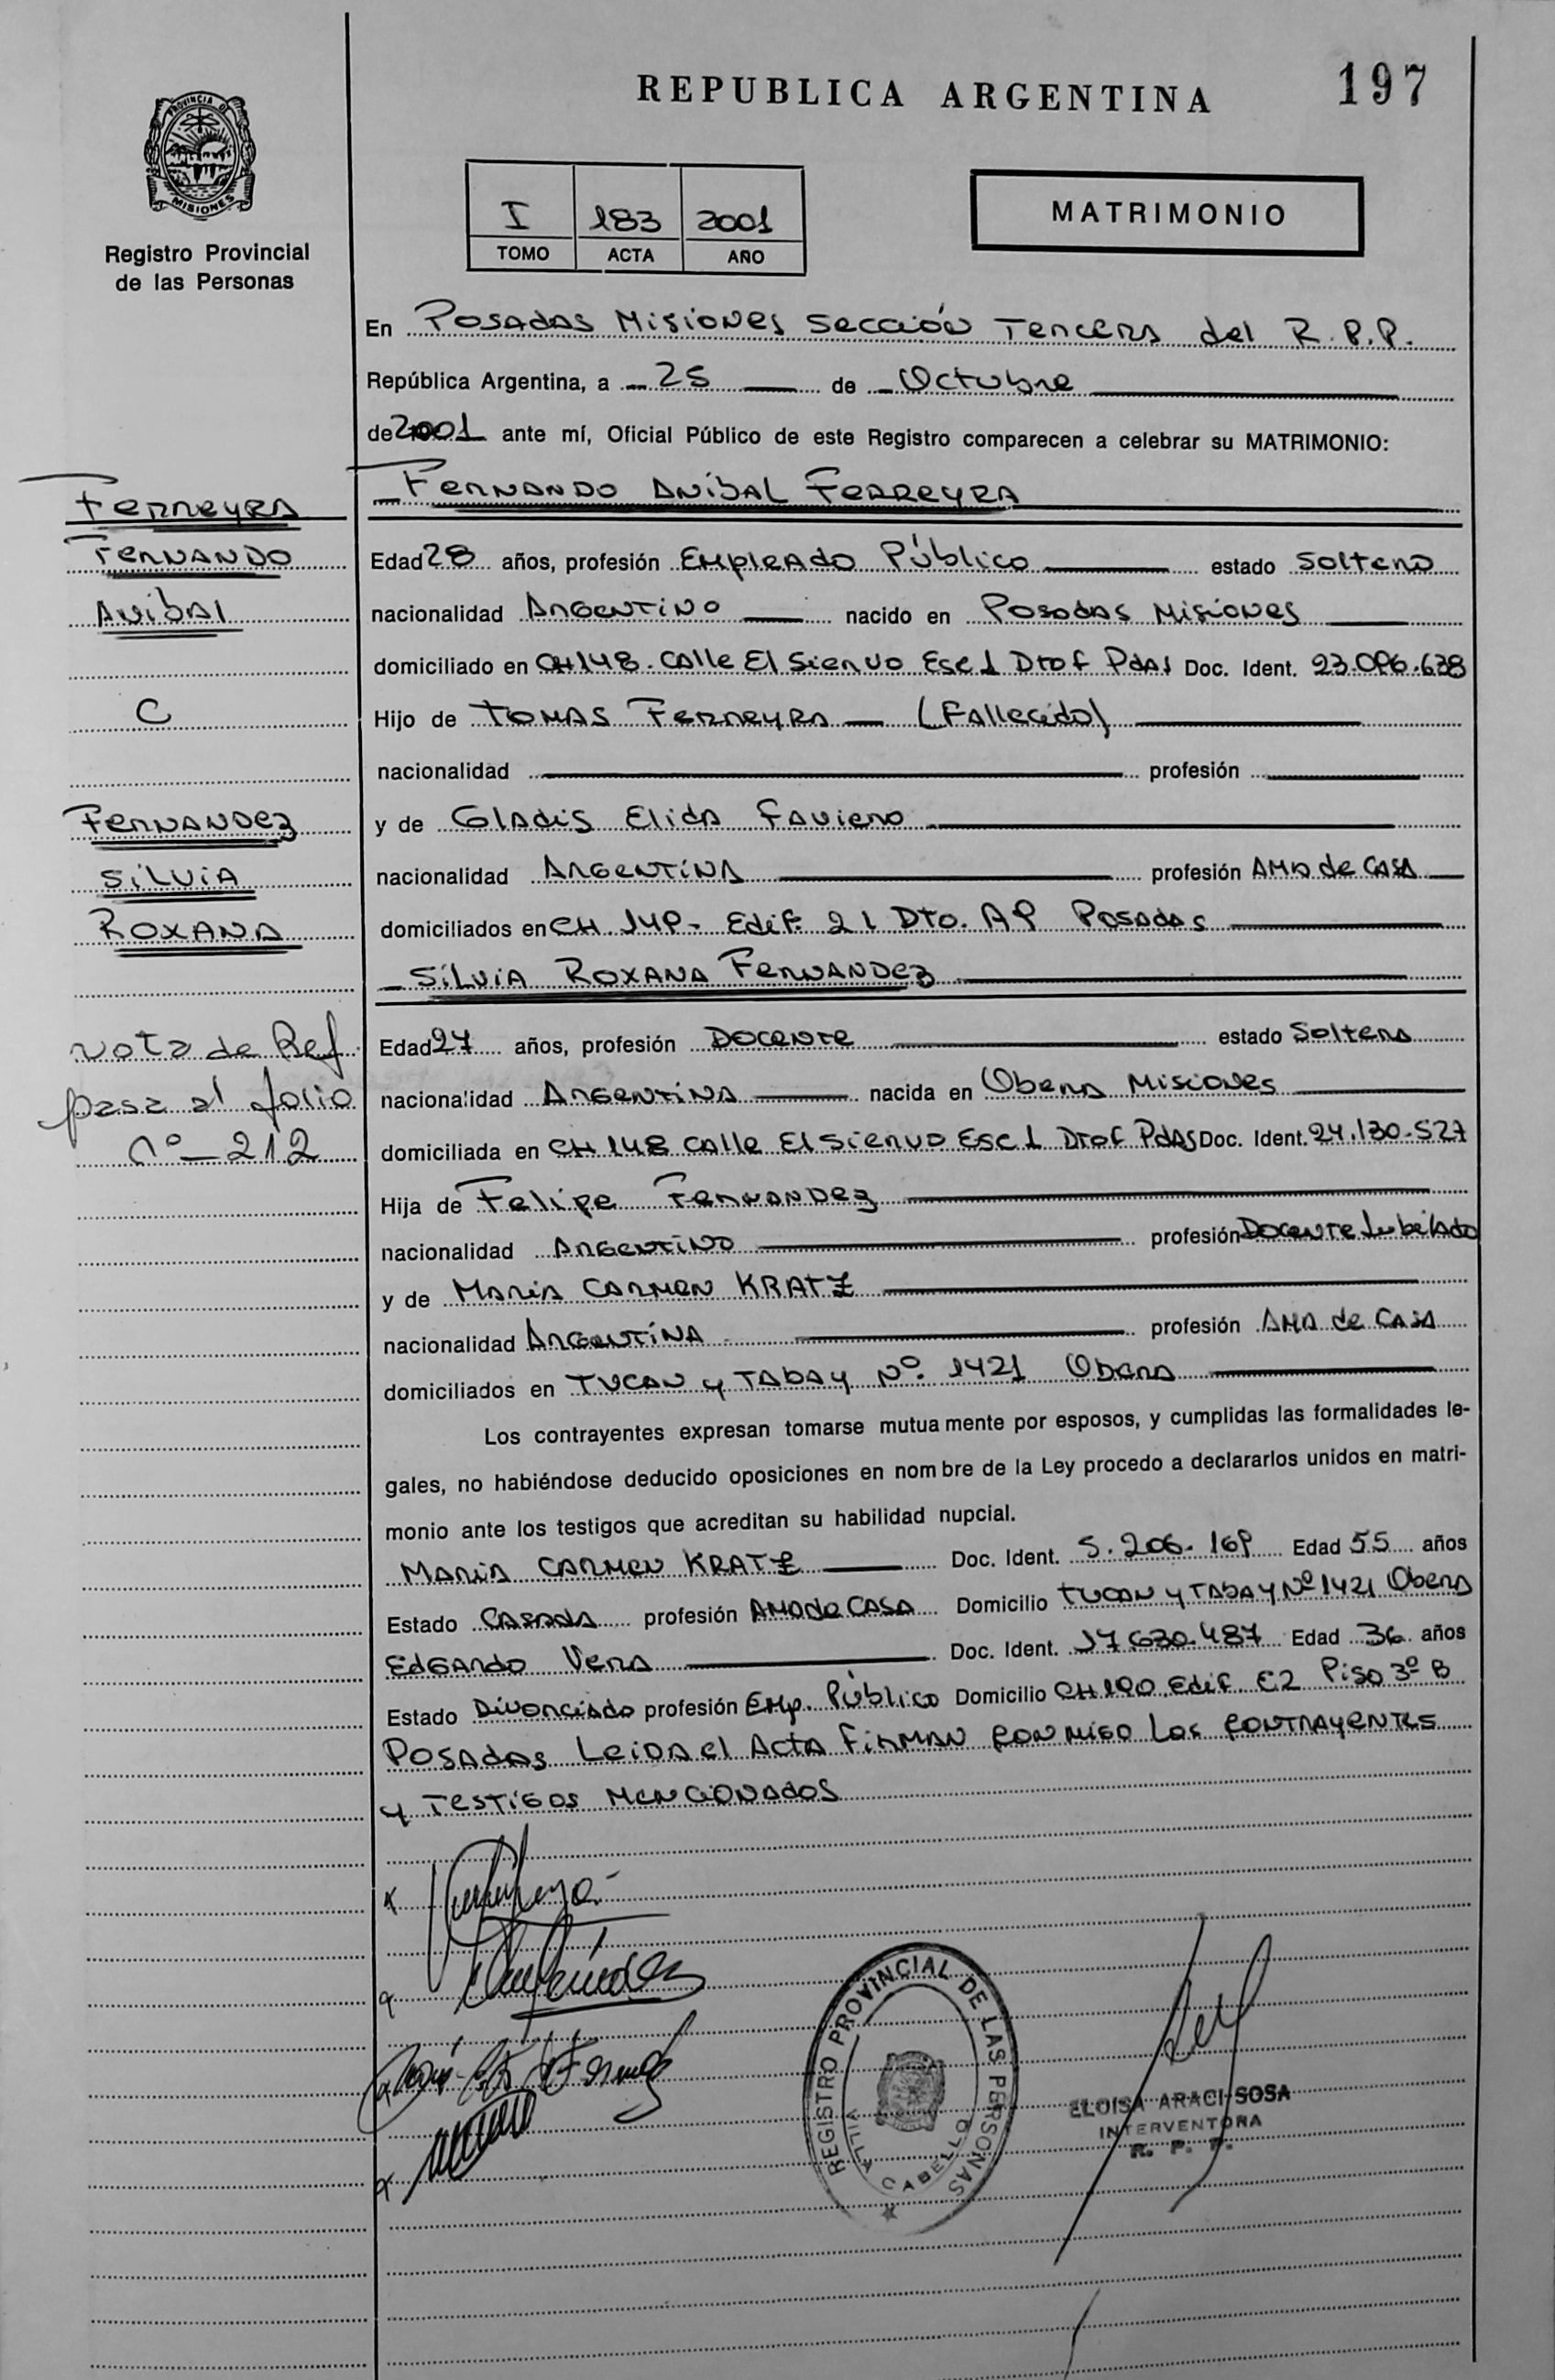 REPUBLICA ARGENTINA 197
PROVINCIA DE
MISIONES
Registro Provincial
de las Personas
I 183 2001
TOMO ACTA AÑO
MATRIMONIO
En Posadas Misiones Sección Tercera del R.P.P.
República Argentina, a 25 de Octubre
de 2001 ante mí, Oficial Público de este Registro comparecen a celebrar su MATRIMONIO:
Fernando Aníbal Ferreyra
Edad 28 años, profesión Empleado Público estado Soltero
nacionalidad Argentino nacido en Posadas Misiones
domiciliado en CH 148. Calle El Siervo Esc 1 Dto F Pdas Doc. Ident. 23.096.638
Hijo de Tomas Ferreyra (Fallecido)
nacionalidad profesión
y de Gladis Elida Faviero
nacionalidad Argentina profesión Ama de Casa
domiciliados en CH. 149- Edif. 21 Dto. A9 Posadas
Silvia Roxana Fernandez
Edad 27 años, profesión Docente estado Soltera
nacionalidad Argentina nacida en Obera Misiones
domiciliada en CH 148 Calle El Siervo Esc 1 Dto F Pdas Doc. Ident. 24.130.527
Hija de Felipe Fernandez
nacionalidad Argentino profesión Docente Jubilado
y de Maria Carmen KRATZ
nacionalidad Argentina profesión Ama de Casa
domiciliados en Tucan y Tabay Nº. 1421 Obera
Los contrayentes expresan tomarse mutuamente por esposos, y cumplidas las formalidades le-
gales, no habiéndose deducido oposiciones en nombre de la Ley procedo a declararlos unidos en matri-
monio ante los testigos que acreditan su habilidad nupcial.
Maria Carmen KRATZ Doc. Ident. 5.206.169 Edad 55 años
Estado Casada profesión Ama de Casa Domicilio Tucan y Tabay Nº 1421 Obera
Edgardo Vera Doc. Ident. 17.630.487 Edad 36 años
Estado Divorciado profesión Emp. Público Domicilio CH 190 Edif. E2 Piso 3º B
Posadas Leida el Acta Firman conmigo Los contrayentes
y Testigos Mencionados
Ferreyra
Fernando
Anibal
C
Fernandez
Silvia
Roxana
Nota de Ref.
pasa al folio
nº 212
REGISTRO PROVINCIAL DE LAS PERSONAS
VILLA CABELLO
ELOISA ARACI SOSA
INTERVENTORA
R. P. P.